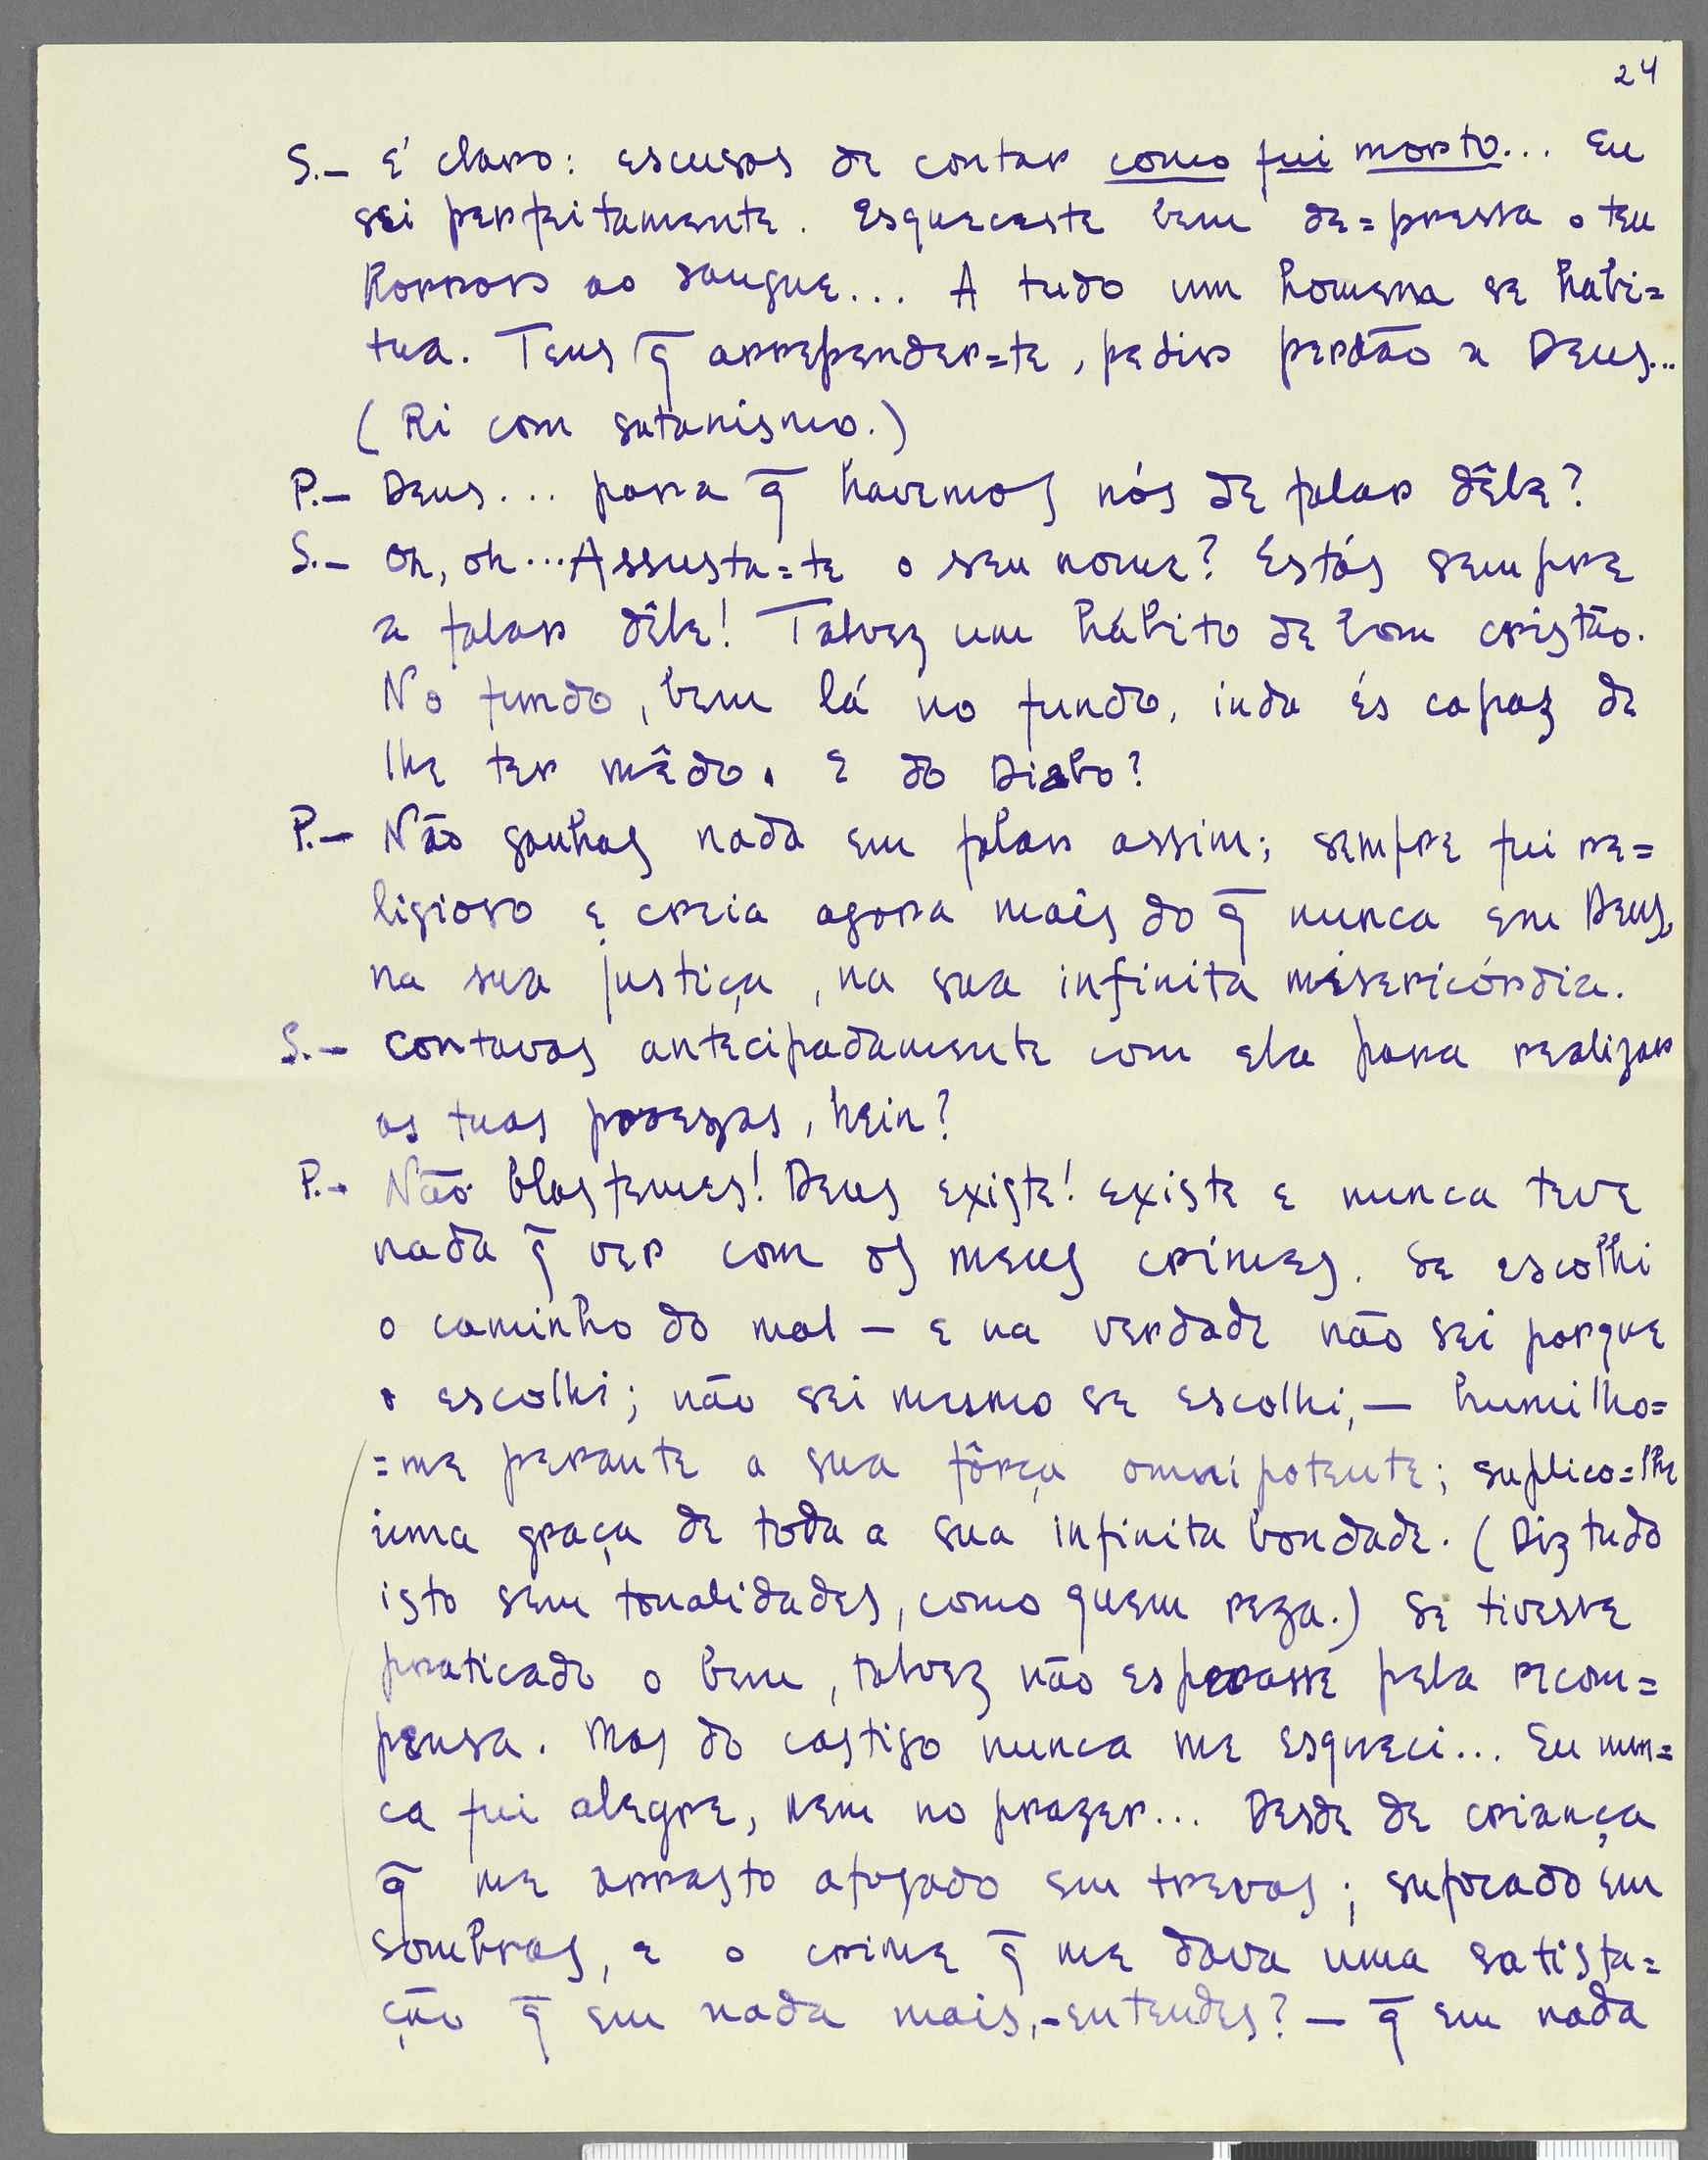 24
S.— É claro: escusas de contar como fui morto... Eu
sei perfeitamente. Esqueceste bem de=pressa o teu
horror ao sangue... A tudo um homem se habi=
tua. Tens q̄ arrepender=te, pedir perdão a Deus...
(Ri com satanismo.)
P.— Deus... para q̄ havemos nós de falar dêle?
S.— Oh, oh... Assusta=te o seu nome? Estás sempre
a falar dêle! Talvez um hábito de bom cristão.
No fundo, bem lá no fundo, inda és capaz de
lhe ter mêdo. E do Diabo?
P.— Não ganhas nada em falar assim; sempre fui re=
ligioso e creia agora mais do q̄ nunca em Deus,
na sua justiça, na sua infinita misericórdia.
S.— Contavas antecipadamente com ela para realizar
as tuas proezas, hein?
P.— Não blasfemes! Deus existe! Existe e nunca teve
nada q̄ ver com os meus crimes. Se escolhi
o caminho do mal — e na verdade não sei porque
o escolhi; não sei mesmo se escolhi, — humilho=
=me perante a sua fôrça omnipotente; suplico=lhe
uma graça de toda a sua infinita bondade. (Diz tudo
isto sem tonalidades, como quem reza.) Se tivesse
praticado o bem, talvez não esperasse pela recom=
pensa. Mas do castigo nunca me esqueci... Eu nun=
ca fui alegre, nem no prazer... Desde de criança
q̄ me arrasto afogado em trevas; sufocado em
sombras, e o crime q̄ me dava uma satisfa=
ção q̄ em nada mais, — entendes? — q̄ em nada